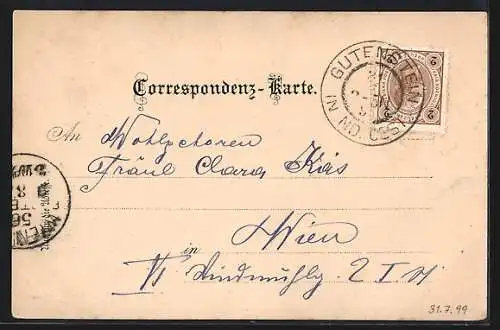 GUTENSTEIN
IN ND. OEST
2 2
Correspondenz-Karte.
An Wohlgeboren
Fräul Clara Käs
in Wien
VI Windmühlg. 2 I
WIEN
56
31.7.99